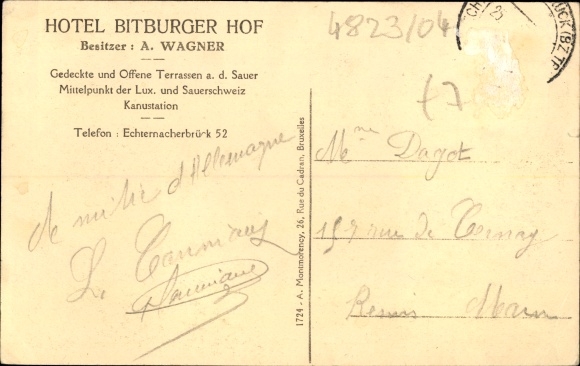 HOTEL BITBURGER HOF
Besitzer : A. WAGNER
Gedeckte und Offene Terrassen a. d. Sauer
Mittelpunkt der Lux. und Sauerschweiz
Kanustation
Telefon : Echternacherbrück 52
4823/04
ÜCK (BZ TR
25
1724 - A. Montmorency, 26, Rue du Cadran, Bruxelles
d'Allemagne
L.
Mme Dagot
rue de Ternay
Reims Marn